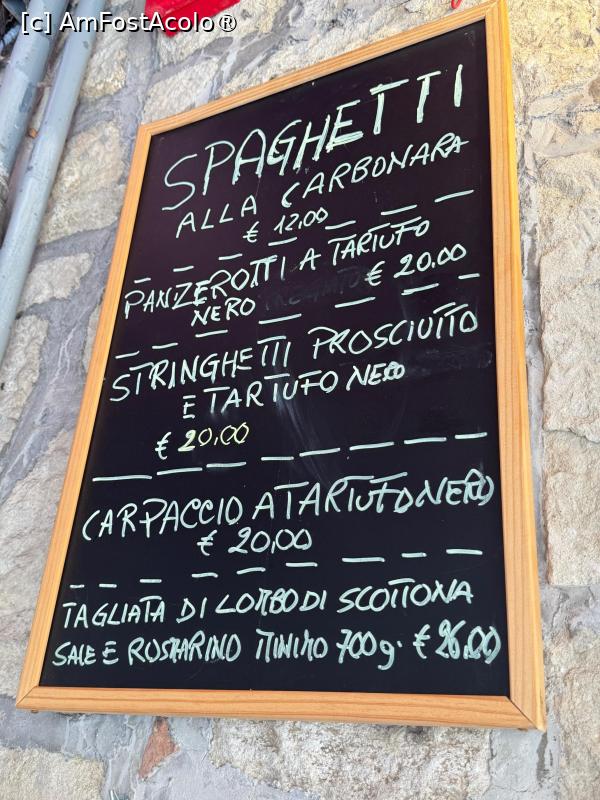 [c] AmFostAcolo®
SPAGHETTI
ALLA CARBONARA
€ 12,00
PANZEROTTI A TARTUFO
NERO € 20.00
STRINGHETTI PROSCIUTTO
E TARTUFO NERO
€ 20,00
CARPACCIO A TARTUFO NERO
€ 20,00
TAGLIATA DI LOMBO DI SCOTTONA
SALE E ROSMARINO MINIMO 700g. € 26,00